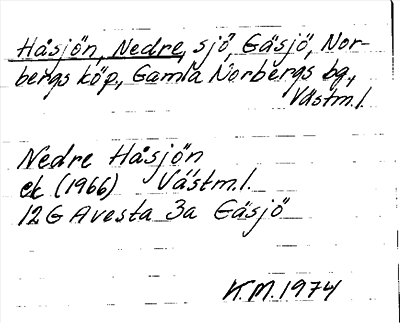 Håsjön, Nedre, sjö, Gäsjö, Nor-
bergs köp, Gamla Norbergs bg.,
Västm.l.
Nedre Håsjön
ek (1966) Västm.l.
12G Avesta 3a Gäsjö
K.M. 1974